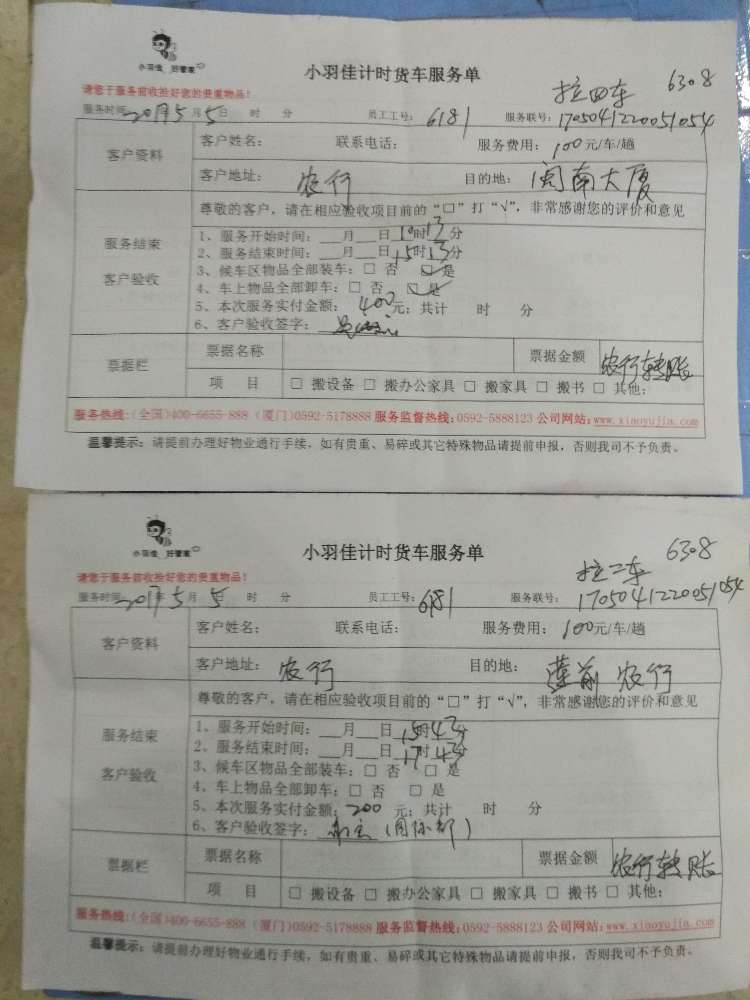 小羽佳 好管家
小羽佳计时货车服务单
拉四车 6308
请您于服务前收捡好您的贵重物品！
服务时间：2017年5月5日 时 分 员工工号：6181 服务联号：1705041220051054
客户资料
客户姓名： 联系电话： 服务费用：100元/车/趟
客户地址：农行 目的地：闽南大厦
服务结束
客户验收
尊敬的客户，请在相应验收项目前的“□”打“√”，非常感谢您的评价和意见
1、服务开始时间：__月__日10时13分
2、服务结束时间：__月__日15时13分
3、候车区物品全部装车：□ 否 ☑ 是
4、车上物品全部卸车：□ 否 ☑ 是
5、本次服务实付金额：400元；共计 时 分
6、客户验收签字：
票据栏
票据名称 票据金额 农行转账
项 目 □ 搬设备 □ 搬办公家具 □ 搬家具 □ 搬书 □ 其他：
服务热线：(全国)400-6655-888 (厦门)0592-5178888 服务监督热线：0592-5888123 公司网站：www.xiaoyujia.com
温馨提示：请提前办理好物业通行手续，如有贵重、易碎或其它特殊物品请提前申报，否则我司不予负责。
小羽佳 好管家
小羽佳计时货车服务单
拉二车 6308
请您于服务前收捡好您的贵重物品！
服务时间：2017年5月5日 时 分 员工工号：6181 服务联号：1705041220051054
客户资料
客户姓名： 联系电话： 服务费用：100元/车/趟
客户地址：农行 目的地：莲前农行
服务结束
客户验收
尊敬的客户，请在相应验收项目前的“□”打“√”，非常感谢您的评价和意见
1、服务开始时间：__月__日15时43分
2、服务结束时间：__月__日17时43分
3、候车区物品全部装车：□ 否 □ 是
4、车上物品全部卸车：□ 否 □ 是
5、本次服务实付金额：200 元；共计 时 分
6、客户验收签字：(国际部)
票据栏
票据名称 票据金额 农行转账
项 目 □ 搬设备 □ 搬办公家具 □ 搬家具 □ 搬书 □ 其他：
服务热线：(全国)400-6655-888 (厦门)0592-5178888 服务监督热线：0592-5888123 公司网站：www.xiaoyujia.com
温馨提示：请提前办理好物业通行手续，如有贵重、易碎或其它特殊物品请提前申报，否则我司不予负责。